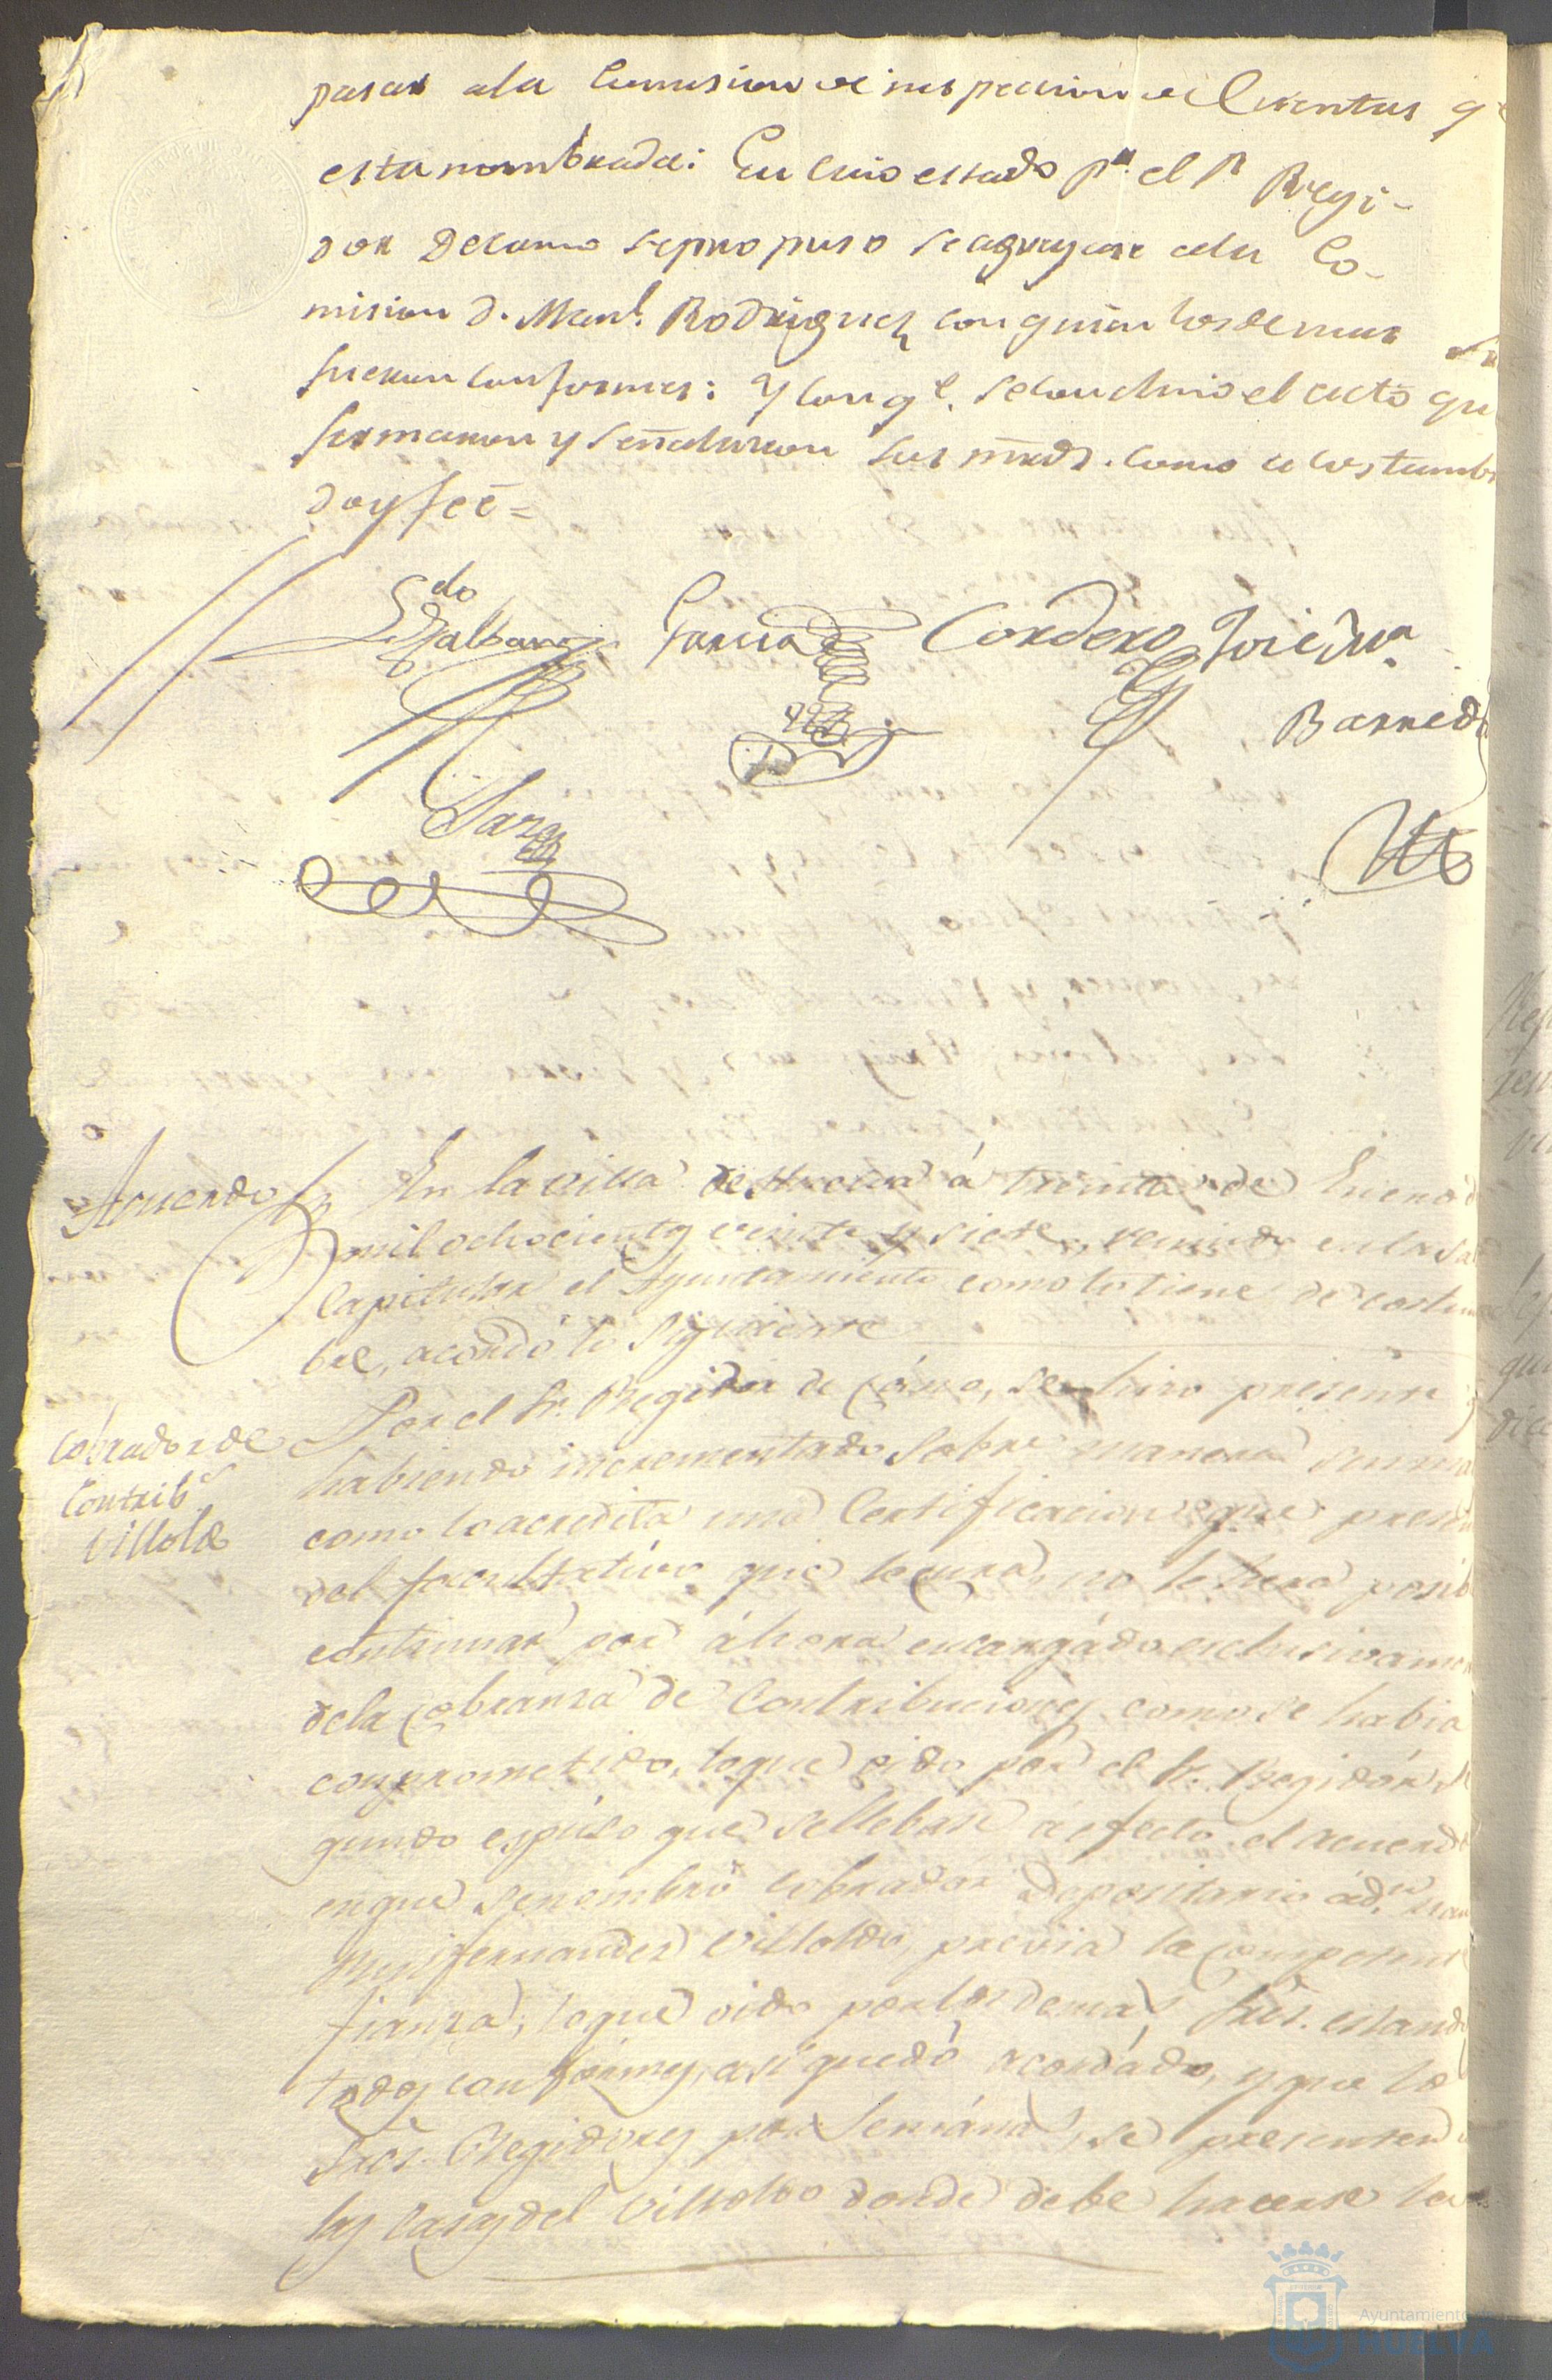 pasar ala Comision de inspeccion de Cuentas q.e
esta nombrada: En cuio estado p.r el S.r Regi-
dor Decano se propuso se agregase ala Co-
mision D. Man.l Rodriguez con quien los demas
fueron conformes: Y con q.e se concluio el acto qu
firmaron y señalaron sus mrds. como acostumb
doy fee =
Ldo
Galbano Garcia Cordero Jose Ma.
Barreda
Sara
Acuerdo En la villa de Huelva á treinta de Enero d
mil ochocientos veinte y siete, reunido en la sa
Capitular el Ayuntamiento como lo tiene de costum
bre, acordó lo siguiente
Cobrador de
Contrib.s
Villoldo
Por el Sr. Regidor de Cáno, se hizo presente q
habiendo incrementado sobre manera
como lo acredita una Certificacion que presen
del facultativo que le cura, no le hera posib
continuar por áhora encargádo exclusivamen
dela cobranza de Contribuciones, como se habia
comprometido, lo que oido por el Sr. Regidór se
gundo espúso que se llebase á efecto el acuerdo
en que se nombró cobrador Depositario á d.n
Fernandez Villoldo, previa la competente
fianza; lo que oido por los demas Sres. estand
todos confórmes, así quedó acordádo, y que lo
Sres. Regidores por Semána, se presenten
las casas del Villoldo donde debe hacerse la
Ayuntamiento
HUELVA